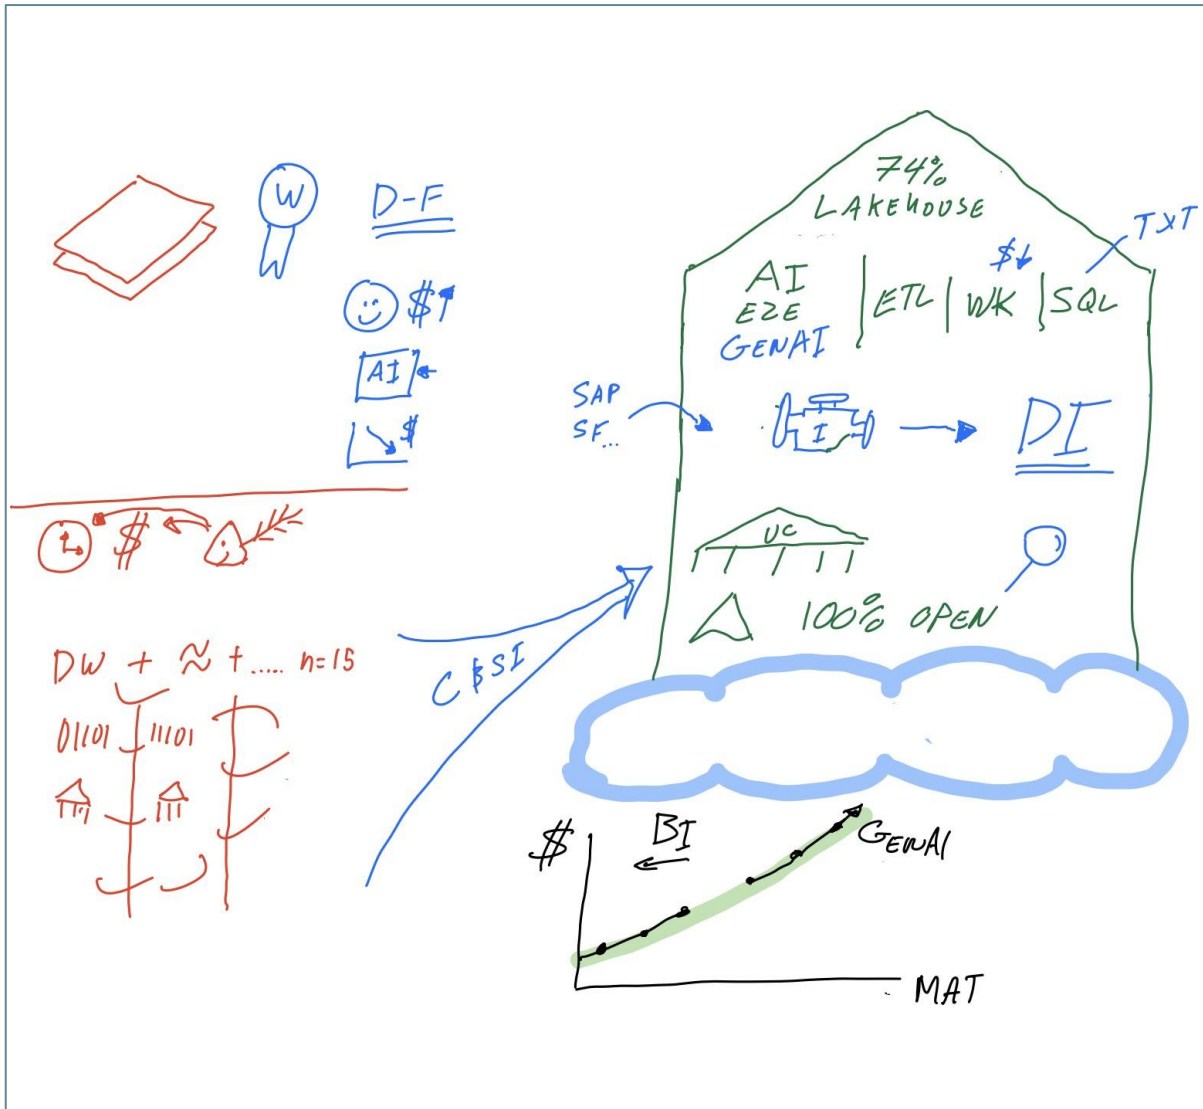 W
D-F
$
AI
$
$
DW + ≈ + ..... n=15
01101 11101
C $ SI
74%
LAKEHOUSE
$ TXT
AI
E2E
GENAI
ETL | WK | SQL
SAP
SF...
I
DI
UC
100% OPEN
$
BI
GENAI
MAT